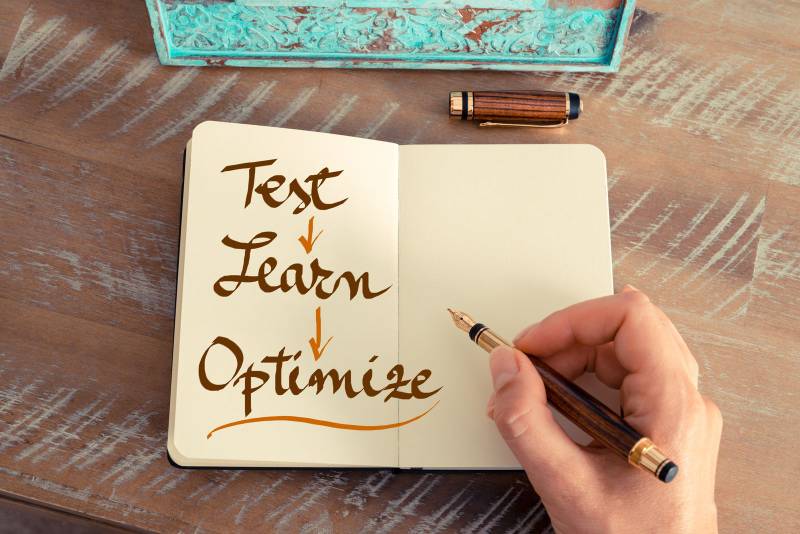 Test
Learn
Optimize